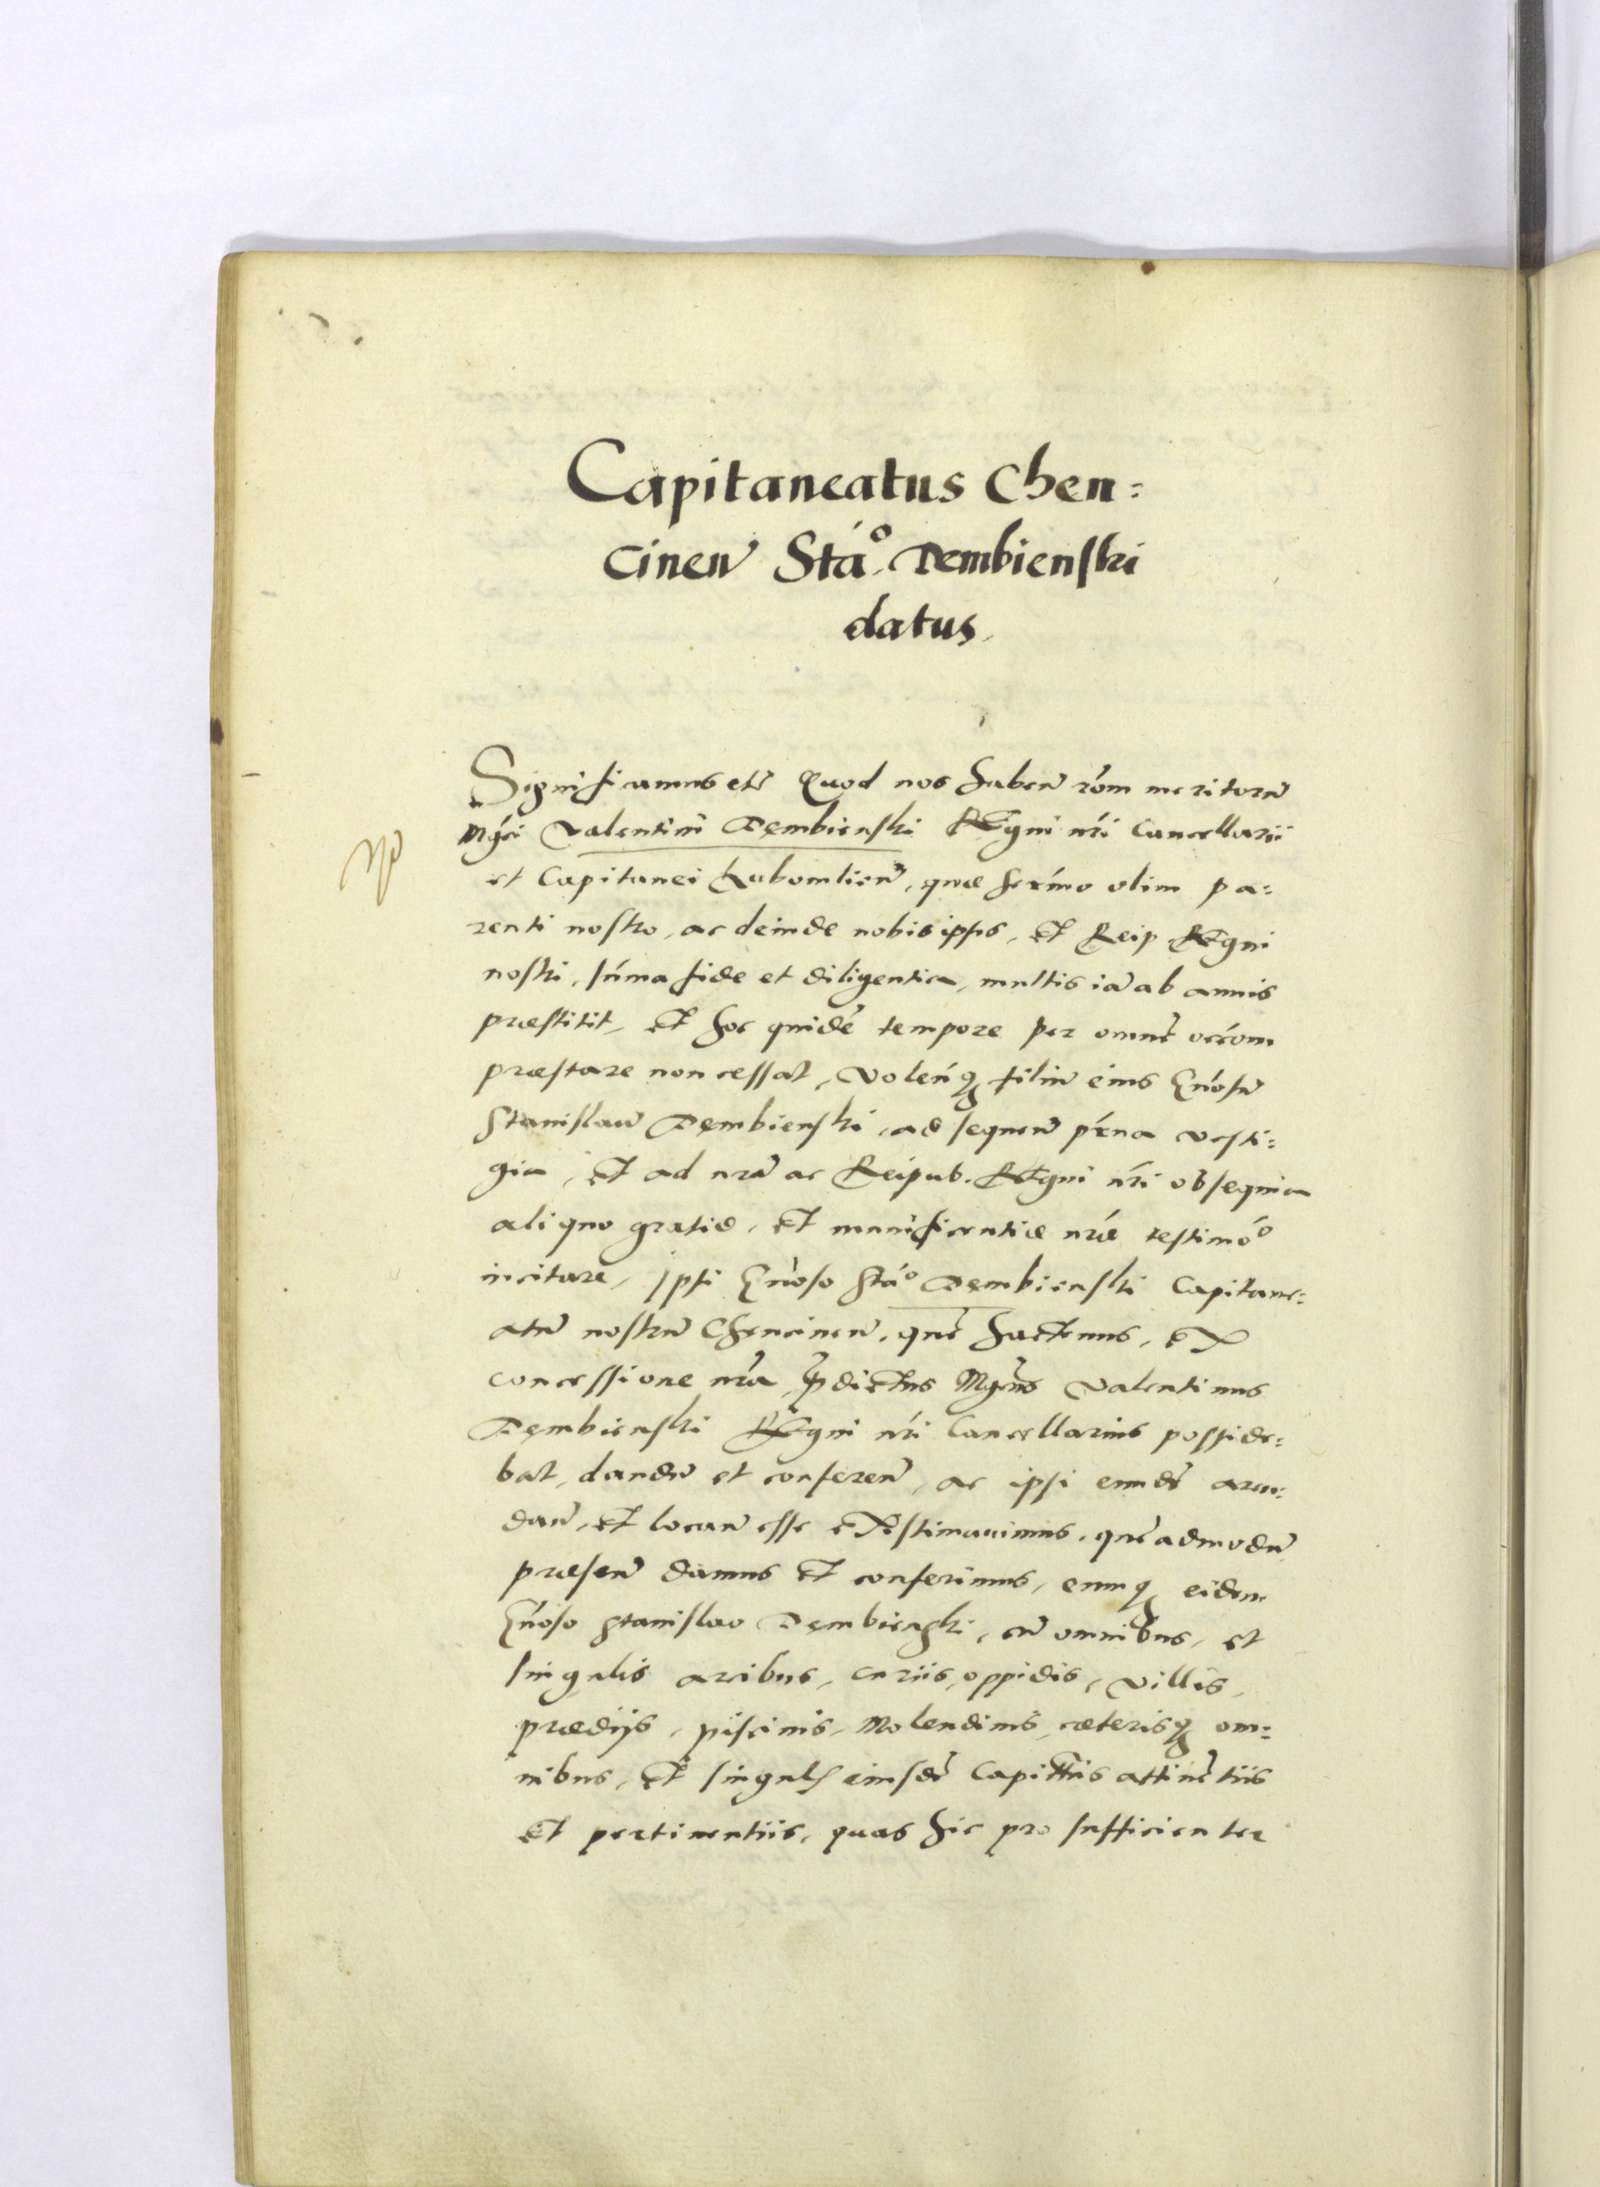 Capitaneatus Chen=
cinen Sta°. Dembienski
datus.
Significamus etc Quod nos haben rõm meritorũ
Mgci Valentini Dembienski Regni nri Cancellarii
et Capitanei Lubomlien, quæ sermo olim pa=
renti nostro, ac deinde nobis ipsis, Et Reip. Regni
nostri, suma fide et diligentia, multis iã ab annis
præstitit, Et hoc quidẽ tempore per omnẽ occõm
præstare non cessat, Volenq filiũ eius Gnosũ
Stanislaũ Dembienski, ad sequen prna vesti=
gia, Et ad nrã ac Reipub. Regni nri obsequia
aliquo gratiæ, Et munificentiæ nræ testimo°
incitare, Ipsi Gnoso Sta° Dembienski Capitane=
atũ nostrũ Chencinen, quẽ hactenus, ex
concessione nra prædictus Mgcus Valentinus
Dembienski Regni nri Cancellarius posside=
bat, dandũ et conferen, ac ipsi eundẽ aren=
dan, Et locan esse existimauimus, quẽadmodũ
præsen damus Et conferimus, eumq eidem
Gnoso Stanislao Dembienski, cũ omnibus, et
singulis arcibus, curiis, oppidis, villis,
prædijs, piscinis, Molendinis, cæterisq om=
nibus, Et singulis eiusdẽ Capittus attinẽtiis
Et pertinentiis, quas hic pro sufficienter